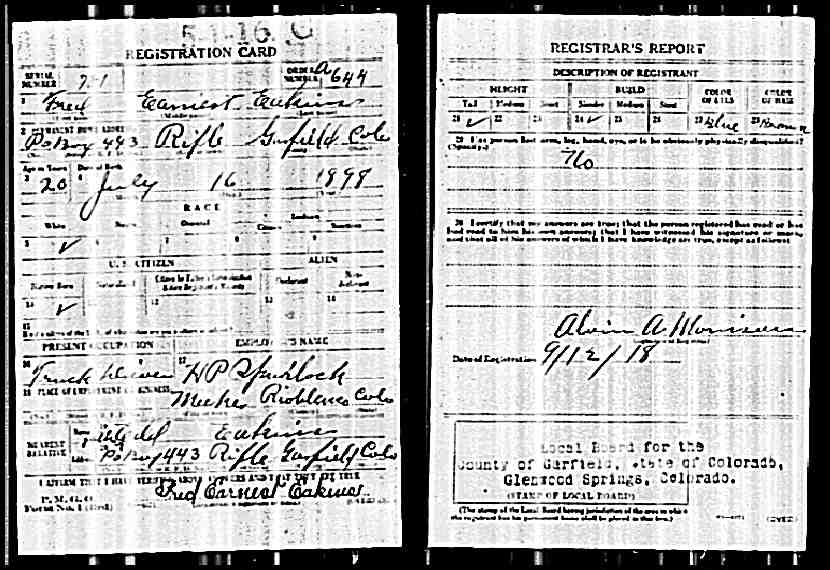 5-1-16. C
REGISTRATION CARD
SERIAL NUMBER
ORDER NUMBER A 644
1 Fred Earnest Eakins
2 PERMANENT HOME ADDRESS
PO Box 443 Rifle Garfield Colo
Age in Years Date of Birth
3 20 4 July 16 1898
RACE
White Negro Oriental Indian
Citizen Noncitizen
5 ✓ 6 7 8 9
U. S. CITIZEN ALIEN
Native Born Naturalized Declarant Non-declarant
10 ✓ 11 12 13 14
15
PRESENT OCCUPATION EMPLOYER'S NAME
16 Truck Driver 17 HP Spurlock
18 PLACE OF EMPLOYMENT OR BUSINESS
Meeker Rioblanco Colo
NEAREST RELATIVE Name Eakins
Address PO Box 443 Rifle Garfield Colo
I AFFIRM THAT I HAVE VERIFIED ABOVE ANSWERS AND THAT THEY ARE TRUE
P. M. G. O.
Form No. 1 (Red)
Fred Earnest Eakins
REGISTRAR'S REPORT
DESCRIPTION OF REGISTRANT
HEIGHT BUILD COLOR OF EYES COLOR OF HAIR
Tall Medium Short Slender Medium Stout
21 ✓ 22 23 24 ✓ 25 26 27 Blue 28 Brown
29 Has person lost arm, leg, hand, eye, or is he obviously physically disqualified?
(Specify.)
No
30 I certify that my answers are true; that the person registered has read or has
had read to him his own answers; that I have witnessed his signature or mark,
and that all of his answers of which I have knowledge are true, except as follows:
Alvin A. Morrison
Date of Registration 9/12/18
Local Board for the
County of Garfield, State of Colorado,
Glenwood Springs, Colorado.
(STAMP OF LOCAL BOARD)
(The stamp of the Local Board having jurisdiction of the area in which
the registrant has his permanent home shall be placed in this box.)
(OVER)